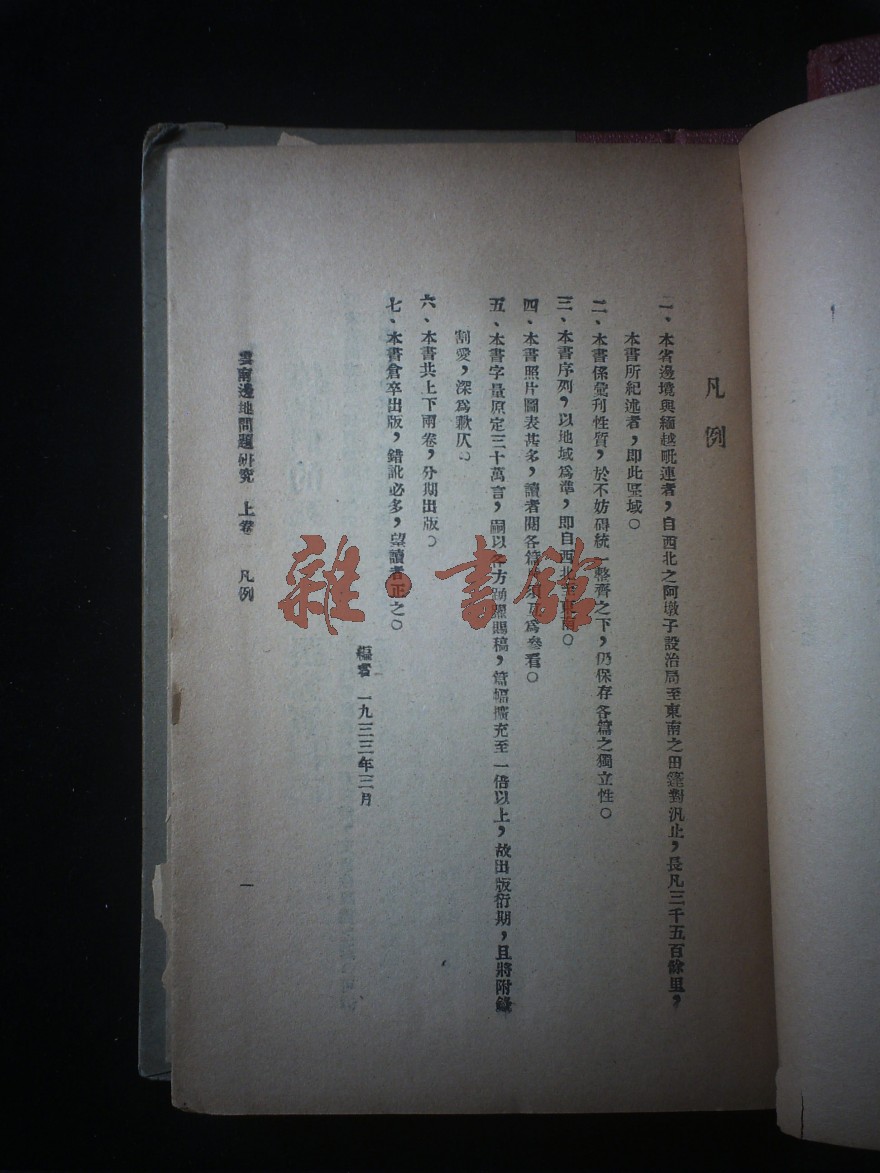 凡例
一、本省邊境與緬越毗連者，自西北之阿墩子設治局至東南之田蓬對汛止，長凡三千五百餘里，
本書所紀述者，即此區域。
二、本書係彙刊性質，於不妨碍統一整齊之下，仍保存各篇之獨立性。
三、本書序列，以地域爲準，即自西北至東南。
四、本書照片圖表甚多，讀者閱各篇時須互爲參看。
五、本書字量原定三十萬言，嗣以各方踴躍賜稿，篇幅擴充至一倍以上，故出版衍期，且將附錄
割愛，深爲歉仄。
六、本書共上下兩卷，分期出版。
七、本書倉卒出版，錯訛必多，望讀者正之。
編者 一九三三年三月
雲南邊地問題研究 上卷 凡例
一
雜·書館